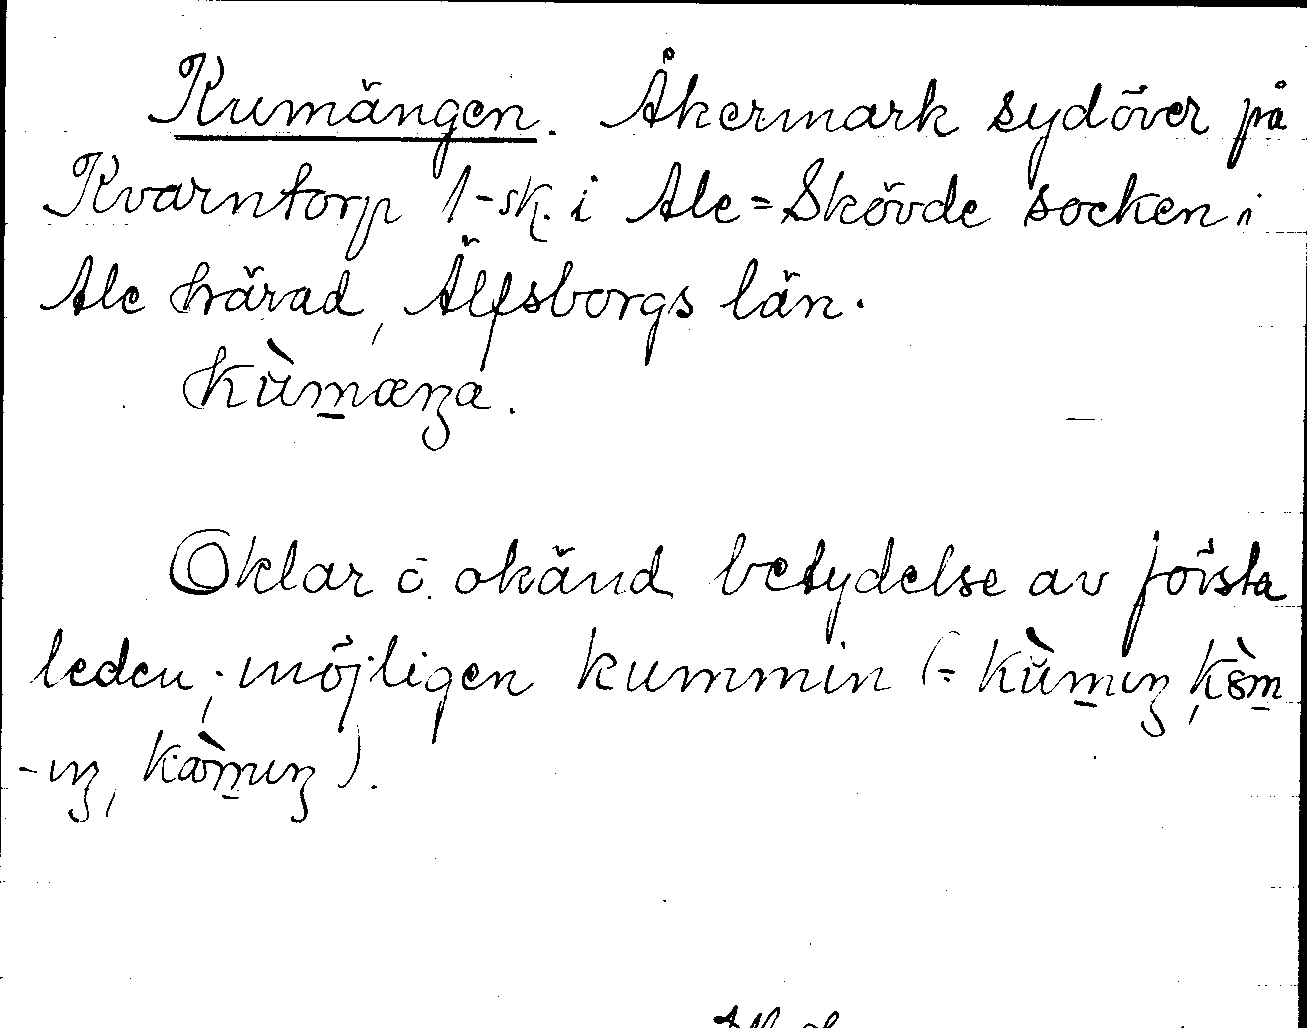 Kumängen. Åkermark sydöver på
Kvarntorp 1-sk. i Ale=Skövde socken i
Ale härad, Älfsborgs län.
kùmæŋa.
Oklar o. okänd betydelse av första
leden; möjligen kummin (= kùmıŋ, kòm
-ıŋ, kàmıŋ).